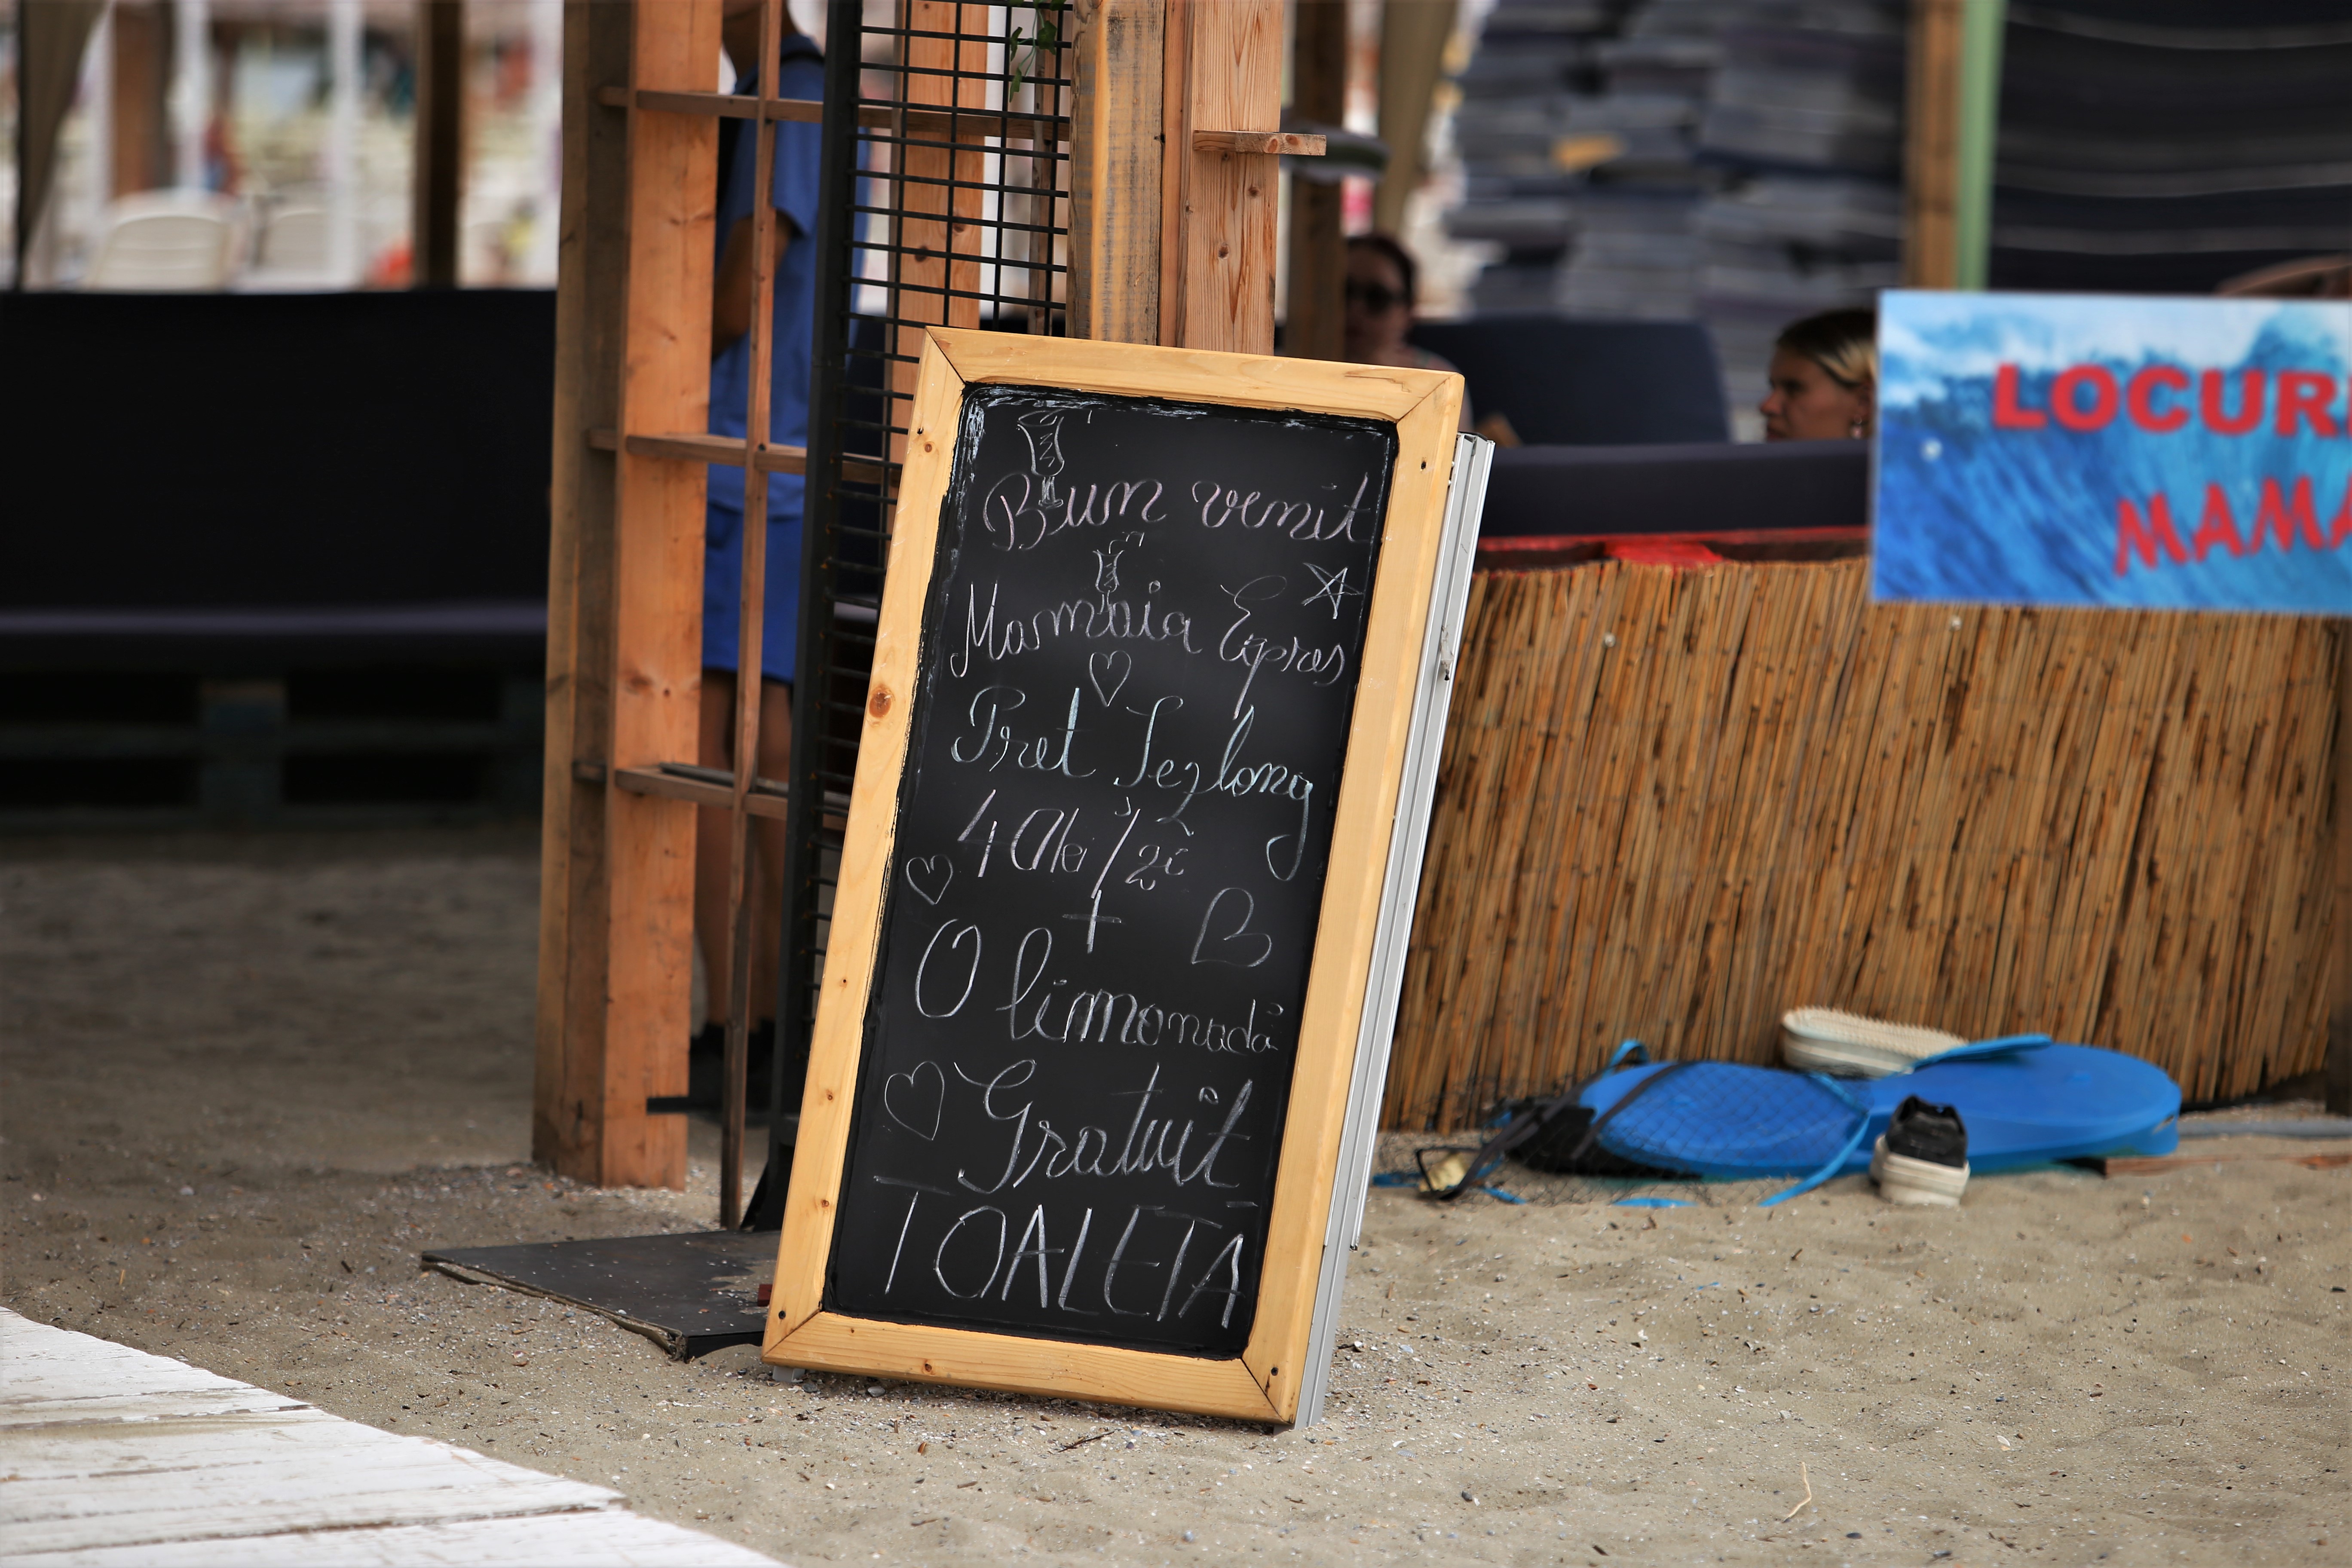 Bun venit
Mamaia Expres
Pret Șezlong
40lei/zi
+
O limonadă
Gratuit
TOALETĂ
LOCURI
MAMA